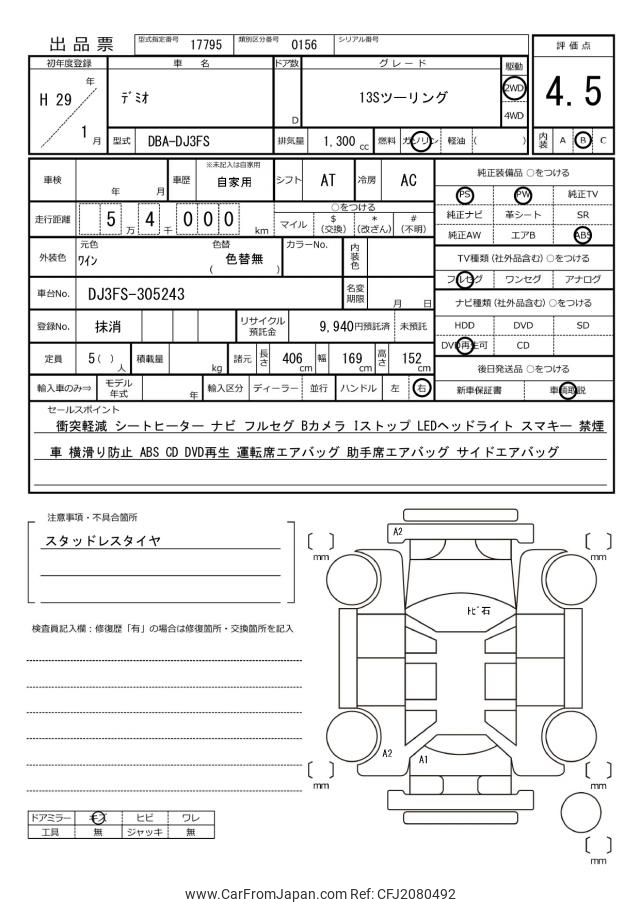 出品票 型式指定番号 17795 類別区分番号 0156 シリアル番号
評価点
4.5
内装 A B C
初年度登録 車名 ドア数 グレード 駆動
H 29 年 1 月
デミオ D 13Sツーリング 2WD 4WD
型式 DBA-DJ3FS 排気量 1,300 cc 燃料 ガソリン 軽油 ( )
車検 年 月 車歴 ※未記入は自家用 自家用 シフト AT 冷房 AC
走行距離 5 万 4 千 0 0 0 km
○をつける
マイル $ (交換) * (改ざん) # (不明)
外装色 元色 ワイン 色替 ( 色替無 ) カラーNo. 内装色
車台No. DJ3FS-305243 名変期限 月 日
登録No. 抹消 リサイクル預託金 9,940円預託済 未預託
定員 5( ) 人 積載量 kg 諸元 長さ 406 cm 幅 169 cm 高さ 152 cm
輸入車のみ⇒ モデル年式 年 輸入区分 ディーラー 並行 ハンドル 左 右
純正装備品 ○をつける
PS PW 純正TV
純正ナビ 革シート SR
純正AW エアB ABS
TV種類(社外品含む) ○をつける
フルセグ ワンセグ アナログ
ナビ種類(社外品含む) ○をつける
HDD DVD SD
DVD再生可 CD
後日発送品 ○をつける
新車保証書 車輌取説
セールスポイント
衝突軽減 シートヒーター ナビ フルセグ Bカメラ Iストップ LEDヘッドライト スマキー 禁煙
車 横滑り防止 ABS CD DVD再生 運転席エアバッグ 助手席エアバッグ サイドエアバッグ
注意事項・不具合箇所
スタッドレスタイヤ
検査員記入欄:修復歴「有」の場合は修復箇所・交換箇所を記入
A2
mm
mm
トビ石
A2
A1
mm
mm
mm
ドアミラー キズ ヒビ ワレ
工具 無 ジャッキ 無
www.CarFromJapan.com Ref: CFJ2080492